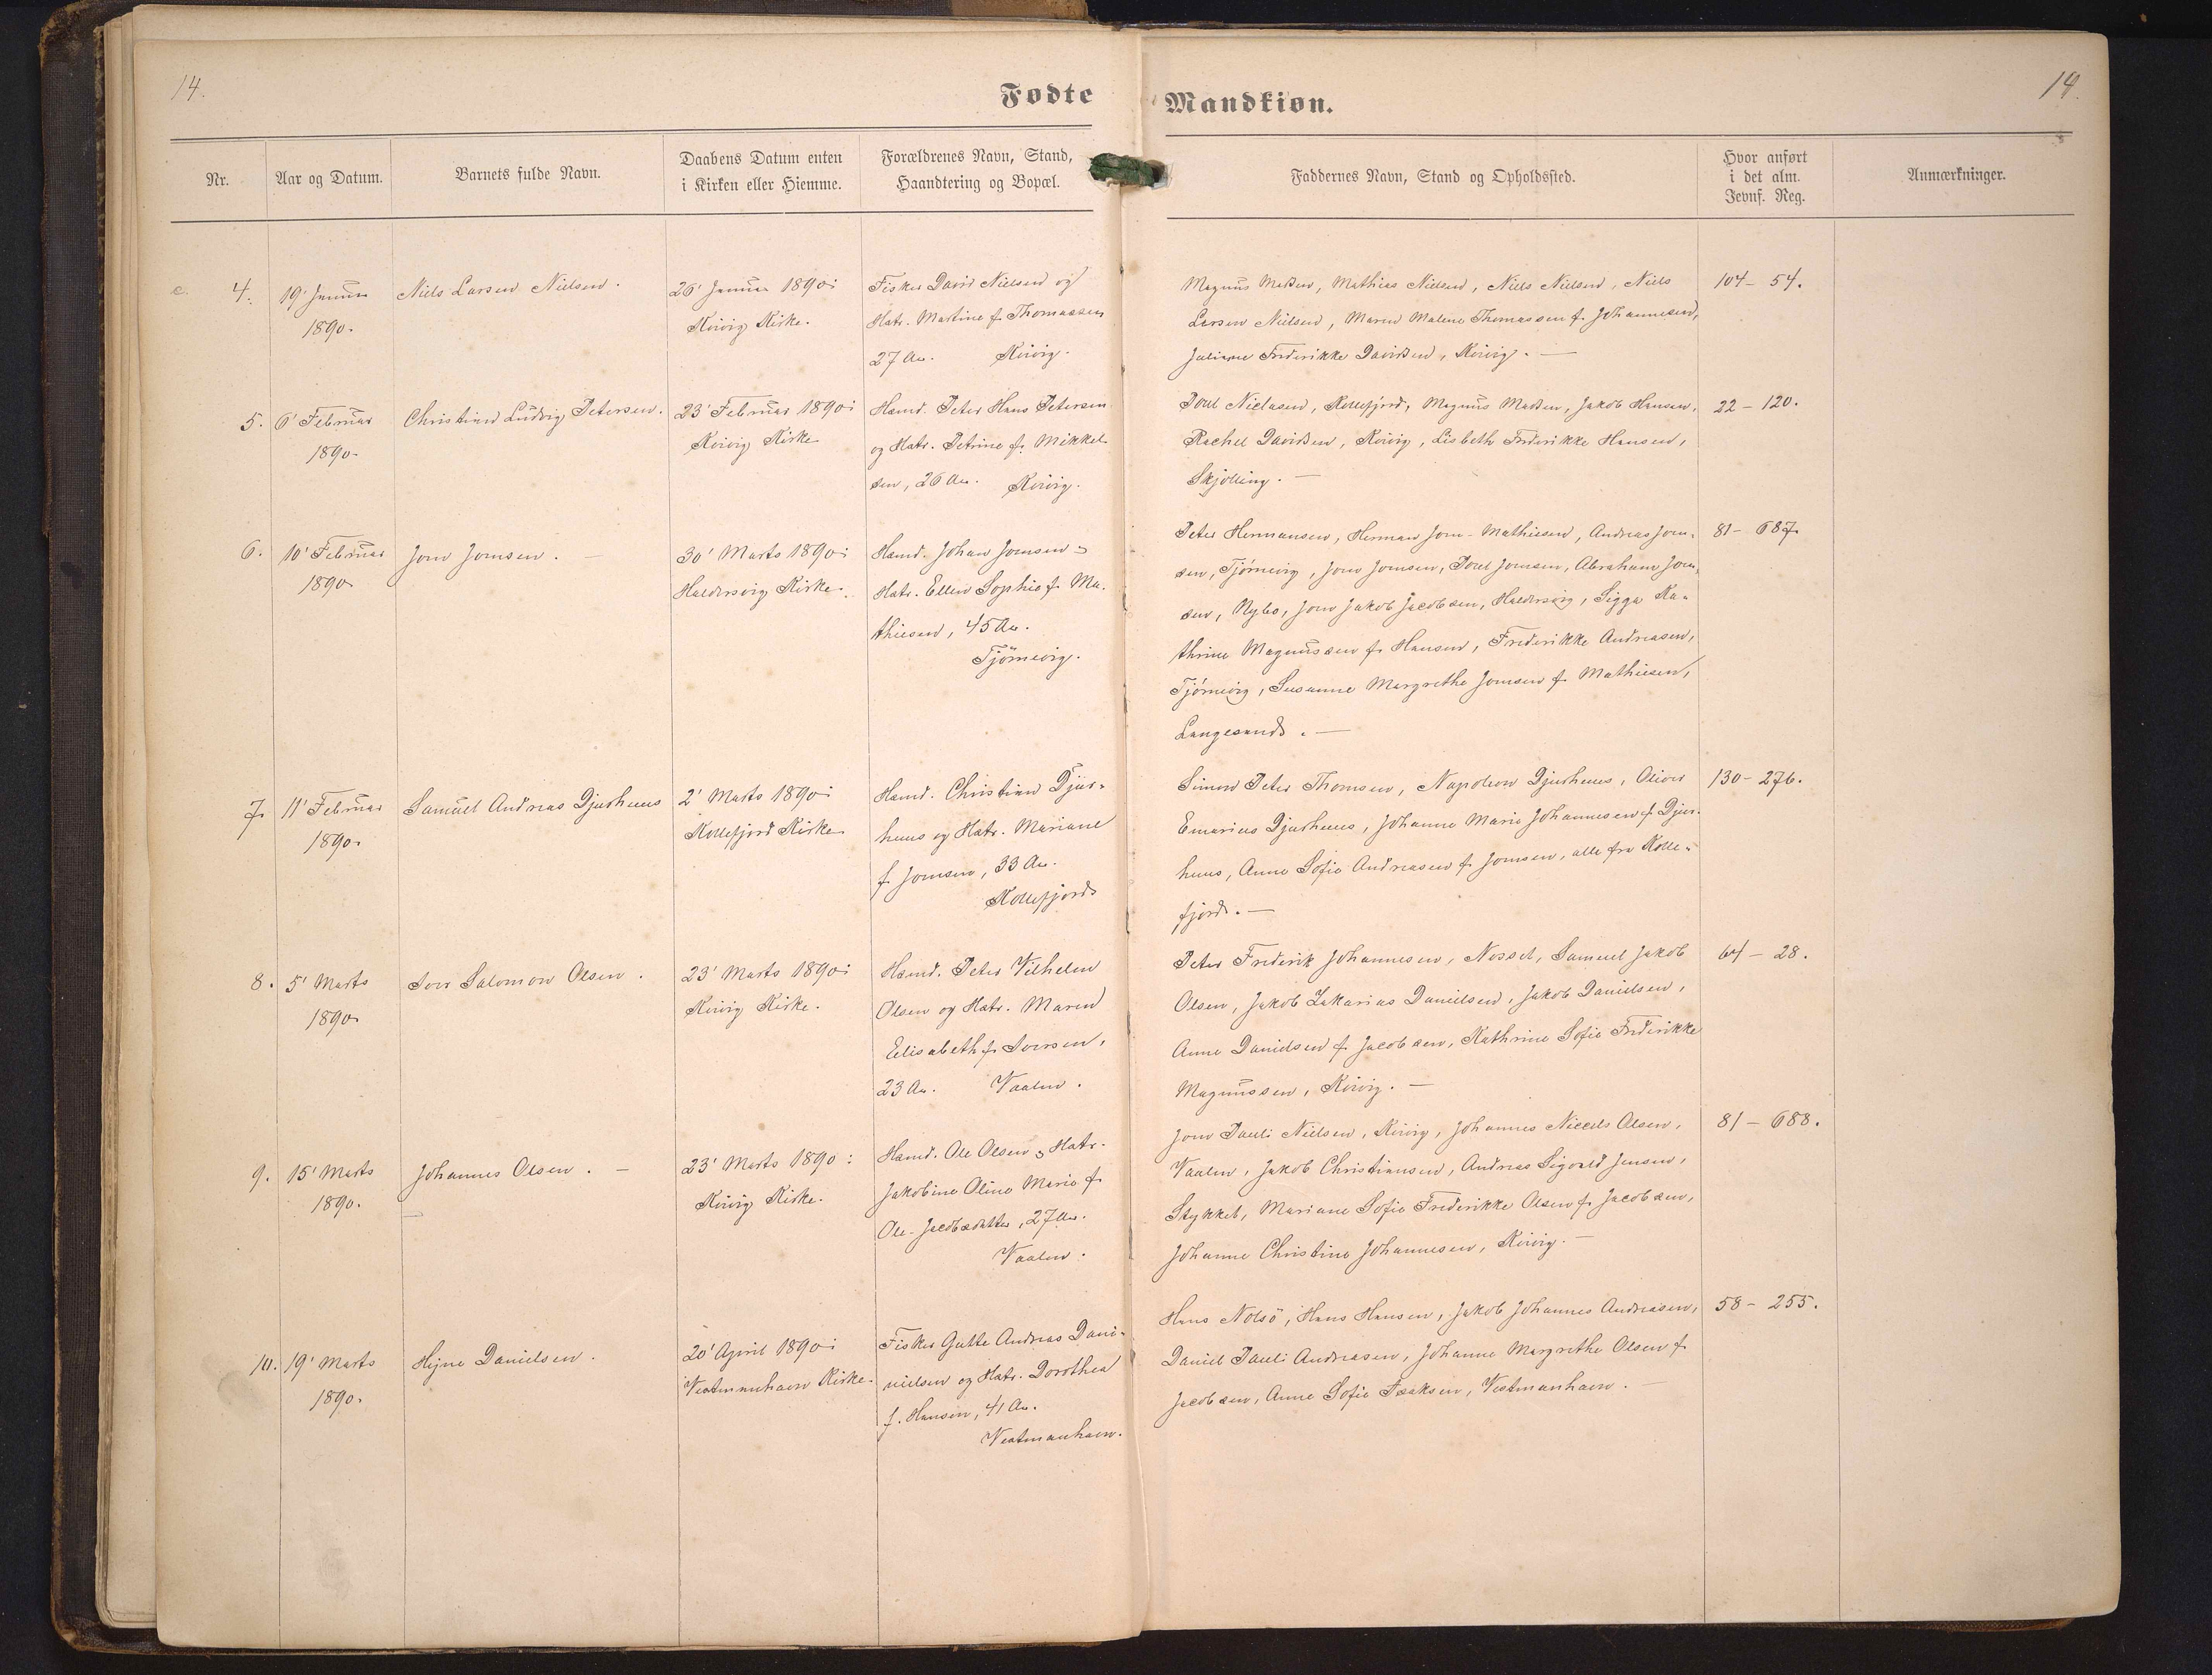 14.
Fødte
Mandkiøn.
14.
Nr.
Aar og Datum.
Barnets fulde Navn.
Daabens Datum enten
i Kirken eller Hiemme.
Forældrenes Navn, Stand,
Haandtering og Bopæl.
Faddernes Navn, Stand og Opholdssted.
Hvor anført
i det alm.
Jevnf. Reg.
Anmærkninger.
4.
19' Januar
1890.
Niels Larsen Nielsen.
26' Januar 1890 i
Kvivig Kirke.
Fisker David Nielsen og
Hstr. Martine f. Thomassen
27 Aar. Kvivig.
Magnus Madsen, Mathias Nielsen, Niels Nielsen, Niels
Larsen Nielsen, Maren Malene Thomassen f. Johannesen,
Juliane Frederikke Davidsen, Kvivig. —
104 - 54.
5.
6' Februar
1890.
Christian Ludvig Petersen.
23' Februar 1890 i
Kvivig Kirke
Hsmd. Peter Hans Petersen
og Hstr. Petrine f. Mikkel-
sen, 26 Aar. Kvivig.
Poul Niclasen, Kollefjord, Magnus Madsen, Jakob Hansen,
Rachel Davidsen, Kvivig, Lisbeth Frederikke Hansen,
Skjelling. —
22 - 120.
6.
10' Februar
1890.
Jom Jomsen. —
30' Marts 1890 i
Haldersvig Kirke.
Hsmd. Johan Jomsen og
Hstr. Ellen Sophie f. Ma-
thiesen, 45 Aar.
Tjörnevig.
Peter Hermansen, Herman Jom-Mathiesen, Andreas Jom-
sen, Tjörnevig, Jom Jomsen, Poul Jomsen, Abraham Jom-
sen, Nybo, Jom Jakob Jacobsen, Haldersvig, Sigga Ka-
thrine Magnussen f. Hansen, Frederikke Andreasen,
Tjörnevig, Susanne Margrethe Jomsen f. Mathiesen,
Langesand. —
81 - 687
7.
11' Februar
1890.
Samuel Andreas Djurhuus
2' Marts 1890 i
Kollefjord Kirke
Hsmd. Christian Djur-
huus og Hstr. Mariane
f. Jomsen, 33 Aar.
Kollefjord
Simon Peter Thomsen, Napoleon Djurhuus, Oliver
Emarius Djurhuus, Johanne Marie Johannesen f. Djur-
huus, Anne Sofie Andreasen f. Jomsen, alle fra Kolle-
fjord. —
130 - 276.
8.
5' Marts
1890
Iver Salomon Olsen.
23' Marts 1890 i
Kvivig Kirke.
Hsmd. Peter Vilhelm
Olsen og Hstr. Maren
Elisabeth f. Iversen,
23 Aar. Vaalen.
Peter Frederik Johannesen, Nesset, Samuel Jakob
Olsen, Jakob Zakarias Danielsen, Jakob Danielsen,
Anne Danielsen f. Jacobsen, Kathrine Sofie Frederikke
Magnussen, Kvivig. —
64 - 28.
9.
15' Marts
1890.
Johannes Olsen. —
23' Marts 1890 i
Kvivig Kirke.
Hsmd. Ole Olsen og Hstr.
Jakobine Oline Marie f.
Ole-Jacobsdatter, 27 Aar.
Vaalen.
Jom Pauli Nielsen, Kvivig, Johannes Niceels Olsen,
Vaalen, Jakob Christiansen, Andreas Sigvald Jensen,
Stykket, Mariane Sofie Frederikke Olsen f. Jacobsen,
Johanne Christine Johannesen, Kvivig. —
81 - 688.
10.
19' Marts
1890.
Hejne Danielsen.
20' April 1890 i
Vestmanhavn Kirke.
Fisker Gutte Andreas Dani-
nielsen og Hstr. Dorothea
f. Hansen, 41 Aar.
Vestmanhavn.
Hans Nolsö, Hans Hansen, Jakob Johannes Andreasen,
Daniel Pauli Andreasen, Johanne Margrethe Olsen f.
Jacobsen, Anne Sofie Isaksen, Vestmanhavn. —
58 - 255.